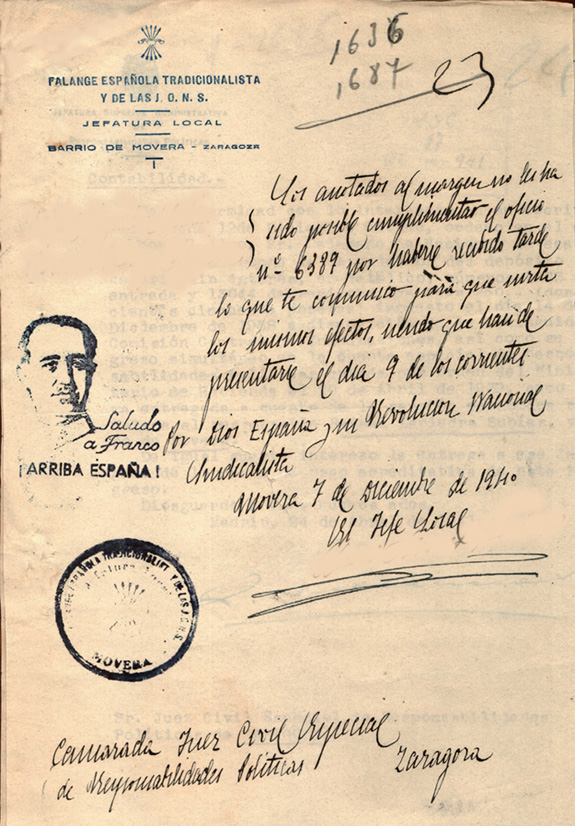 1636
1687
23
FALANGE ESPAÑOLA TRADICIONALISTA
Y DE LAS J. O. N. S.
JEFATURA LOCAL
BARRIO DE MOVERA - ZARAGOZA
Contabilidad.-
Los anotados al margen no les ha
sido posible cumplimentar el oficio
nº 6389 por haberse recibido tarde
lo que te comunico para que surta
los mismos efectos, siendo que han de
presentarse el dia 9 de los corrientes
Por Dios España y su Revolucion Nacional
Sindicalista
Movera 7 de Diciembre de 1940
El Jefe Local
Saludo
a Franco
¡ARRIBA ESPAÑA!
MOVERA
Camarada Juez Civil Especial
de Responsabilidades Politicas
Zaragoza